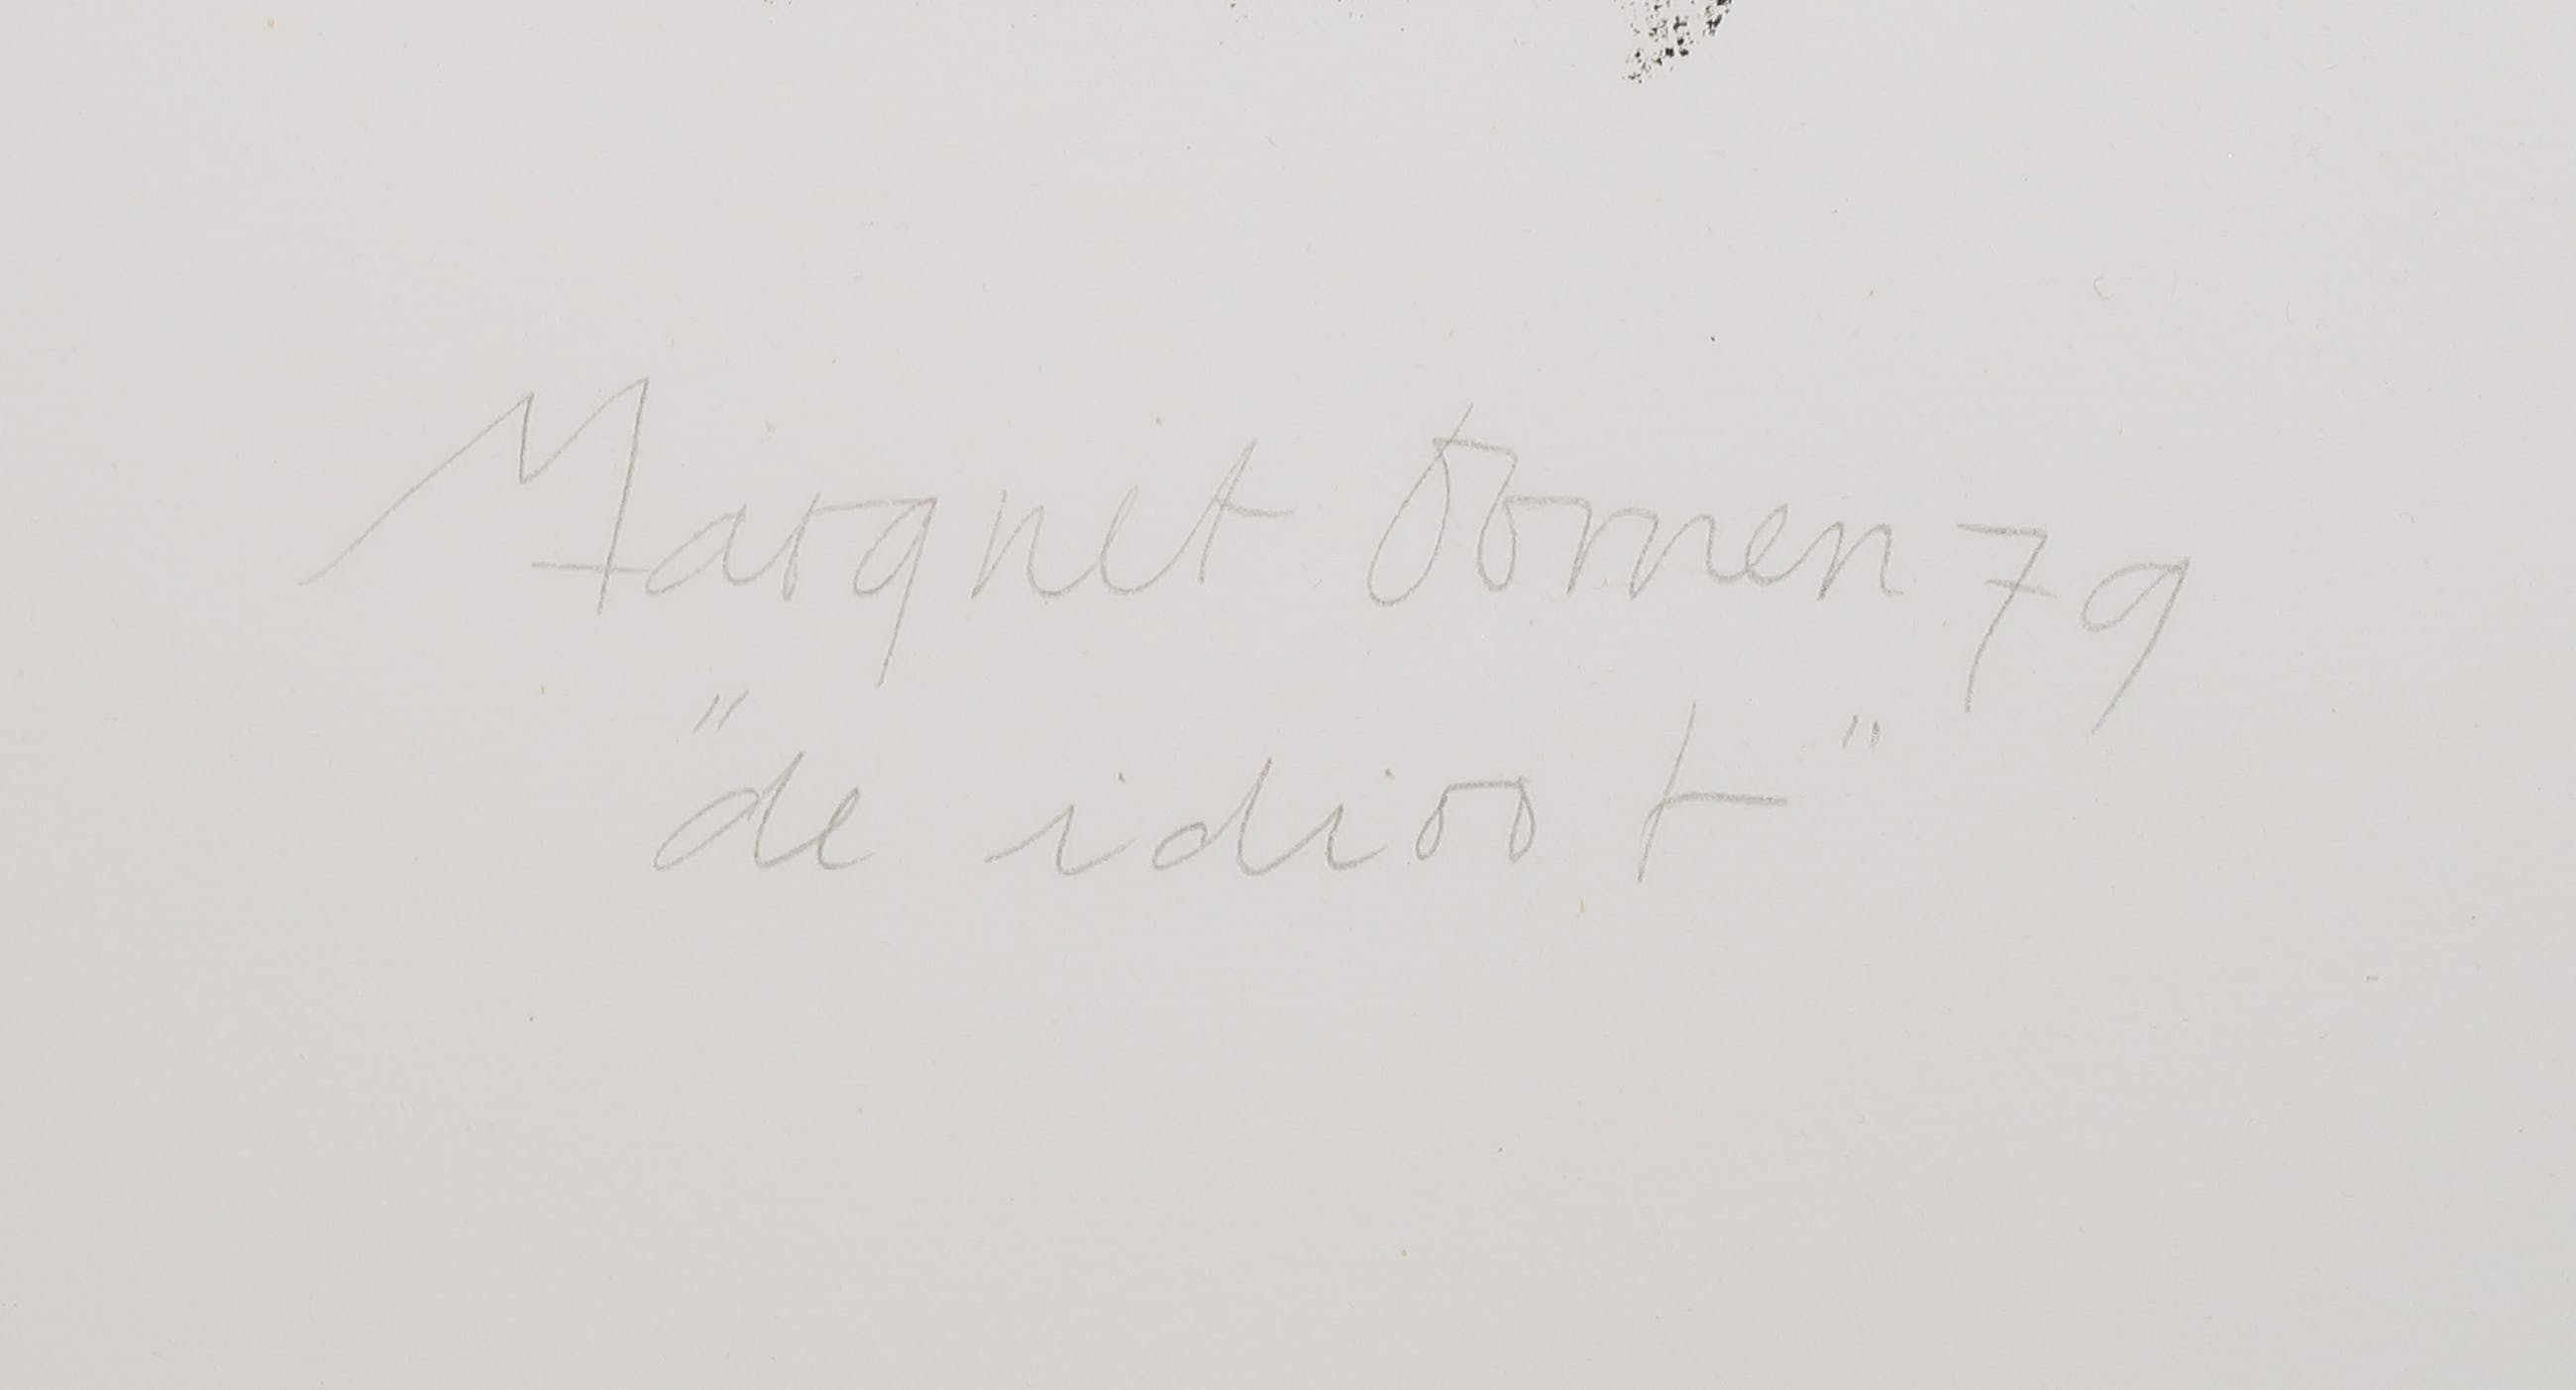 Margriet Oomen 79
"de idioot"